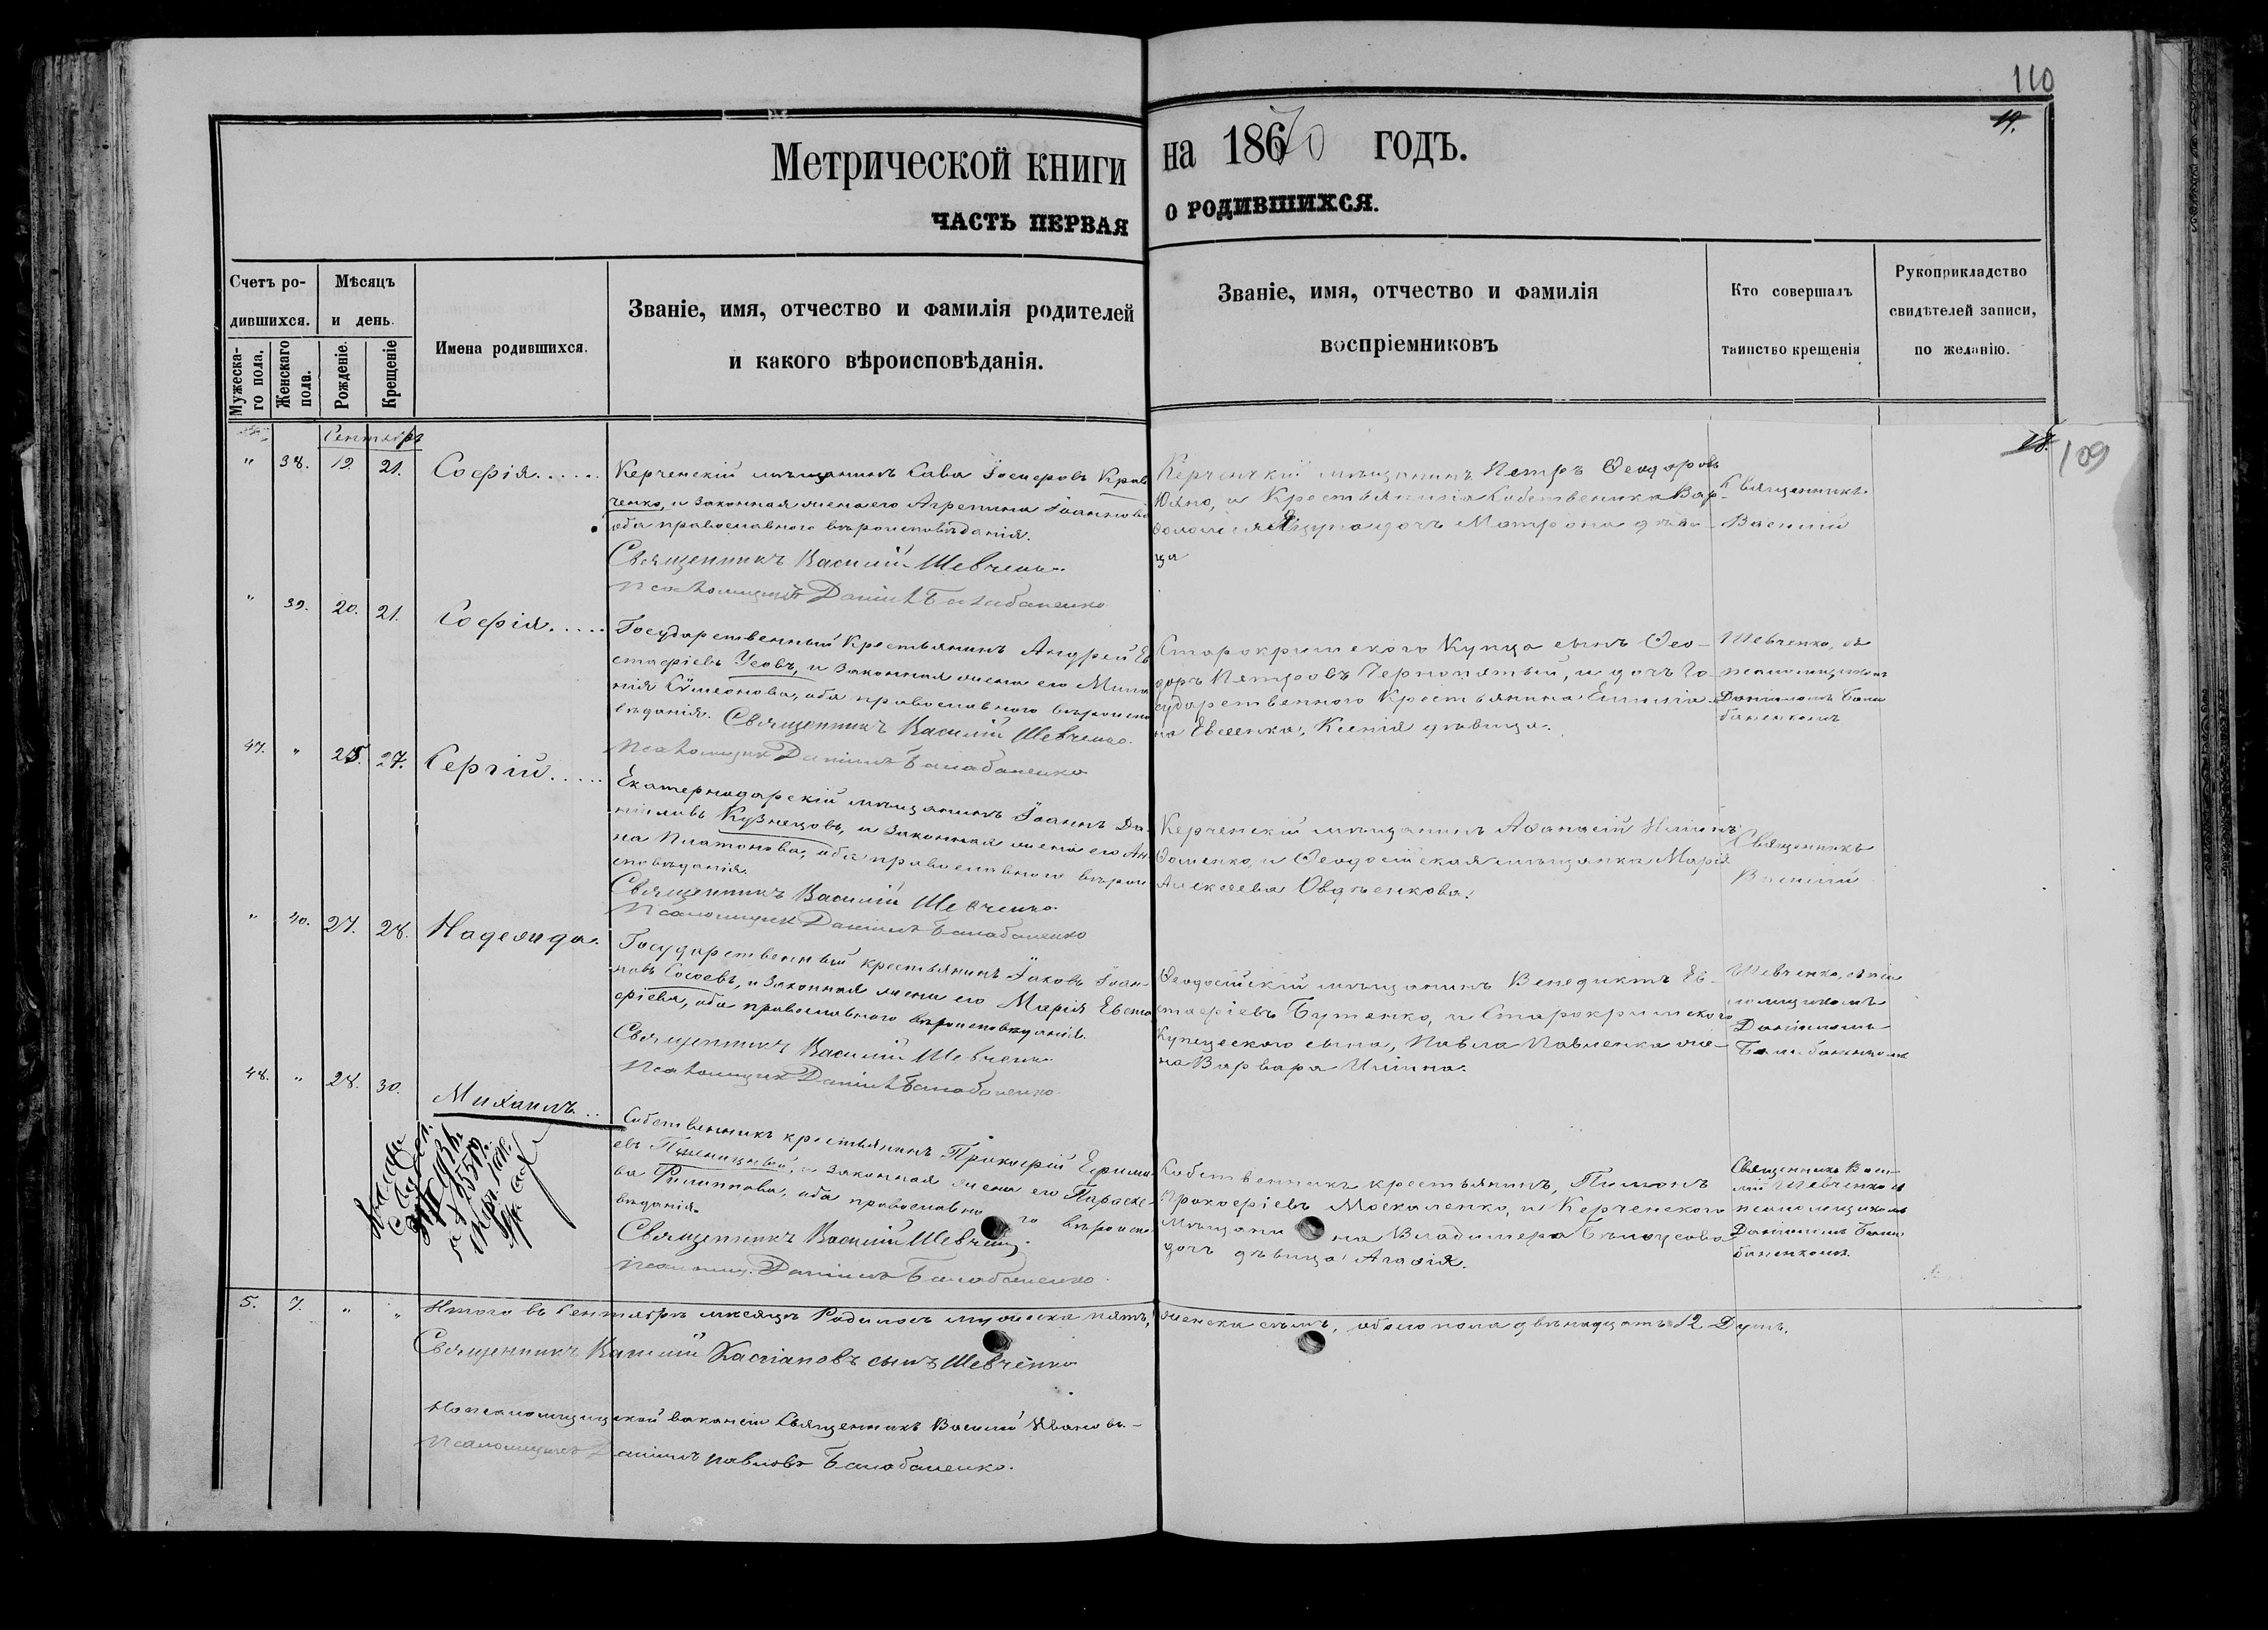 110
19.
Метрической книги на 1870 годъ.
ЧАСТЬ ПЕРВАЯ О РОДИВШИХСЯ.
Счетъ родившихся.
Мужескаго пола.
Женскаго пола.
Мѣсяцъ и день.
Рожденіе.
Крещеніе
Имена родившихся.
Званіе, имя, отчество и фамилія родителей
и какого вѣроисповѣданія.
Званіе, имя, отчество и фамилія
воспріемниковъ
Кто совершалъ
таинство крещенія
Рукоприкладство
свидѣтелей записи,
по желанію.
18.
109
Сентябрь
" 38. 19. 21. Софія.....
Керченскій мѣщанинъ Сава Іосифовъ Крав
ченко, и законная жена его Агрепина Іоаннова
оба православнаго вѣроисповѣданія.
Священникъ Василій Шевченко
Псаломщикъ Даніилъ Балабаненко
Керченскій мѣщанинъ Петръ Ѳеодоровъ
Юхно, и Крестьянина Собственника Вар-
дочь Матрона дѣви-
ца
Священникъ
Василій
" 39. 20. 21. Софія.....
Государственный Крестьянинъ Андрей Ев
стафіевъ Усовъ, и законная жена его
Сѵмеонова, оба православнаго вѣроиспо
вѣданія. Священникъ Василій Шевченко.
Псаломщикъ Даніилъ Балабаненко
Старокрымскаго Купца сынъ Ѳео-
доръ Петровъ Чернопятый, и дочь Го-
сударственнаго Крестьянина Емиліа-
на Евсеенка, Ксенія дѣвица.
Шевченко, съ
псаломщикомъ
Даніиломъ Бала
баненкомъ
47. " 25. 27. Сергій.....
Екатеринодарскій мѣщанинъ Іоаннъ Да-
ніиловъ Кузнецовъ, и законная жена его Ан
на Платонова, оба православнаго вѣрои
сповѣданія.
Священникъ Василій Шевченко
Псаломщикъ Даніилъ Балабаненко
Керченскій мѣщанинъ Аѳанасій Ильинъ
Ѳоменко, и Ѳеодосійская мѣщанка Марія
Алексеева Овдѣенкова.
Священникъ
Василій
" 40. 27. 28. Надежда.
Государственный крестьянинъ Іаковъ Іоан-
новъ Сосоевъ, и законная жена его Марія Евста
фіева, оба православнаго вѣроисповѣданія.
Священникъ Василій Шевченко
Псаломщикъ Даніилъ Балабаненко
Ѳеодосійскій мѣщанинъ Венедиктъ Ев-
стафіевъ Бутенко, и Старокрымскаго
Купеческаго сына, Павла Павленка же-
на Варвара Ильина.
Шевченко, съ пса
ломщикомъ
Даніиломъ
Балабаненкомъ
48. " 28. 30. Михаилъ..
Собственникъ крестьянинъ Прокофій Ефимо
евъ Пшеницный, и законная жена его Параске-
ва Филиппова, оба православнаго вѣроиспо
вѣданія.
Священникъ Василій Шевченко.
Псаломщ. Даніилъ Балабаненко.
Собственникъ крестьянинъ, Пимонъ
Прокофіевъ Москаленко, и Керченскаго
Мѣщанина Владимера Бѣлоусова
дочь дѣвица Агафія.
Священникъ Васи-
лій Шевченко съ
псаломщикомъ
Даніиломъ Бала
баненкомъ.
5. 7. " " Итого въ Сентябрѣ мѣсяцѣ Родилось мужеска пять, женска семъ, обоего пола двѣнадцать 12 Душъ.
Священникъ Василій Касіановъ сынъ Шевченко
На псаломщицкой вакансіи Священникъ Василій Ивановъ-
Псаломщикъ Даніилъ Павловъ Балабаненко.